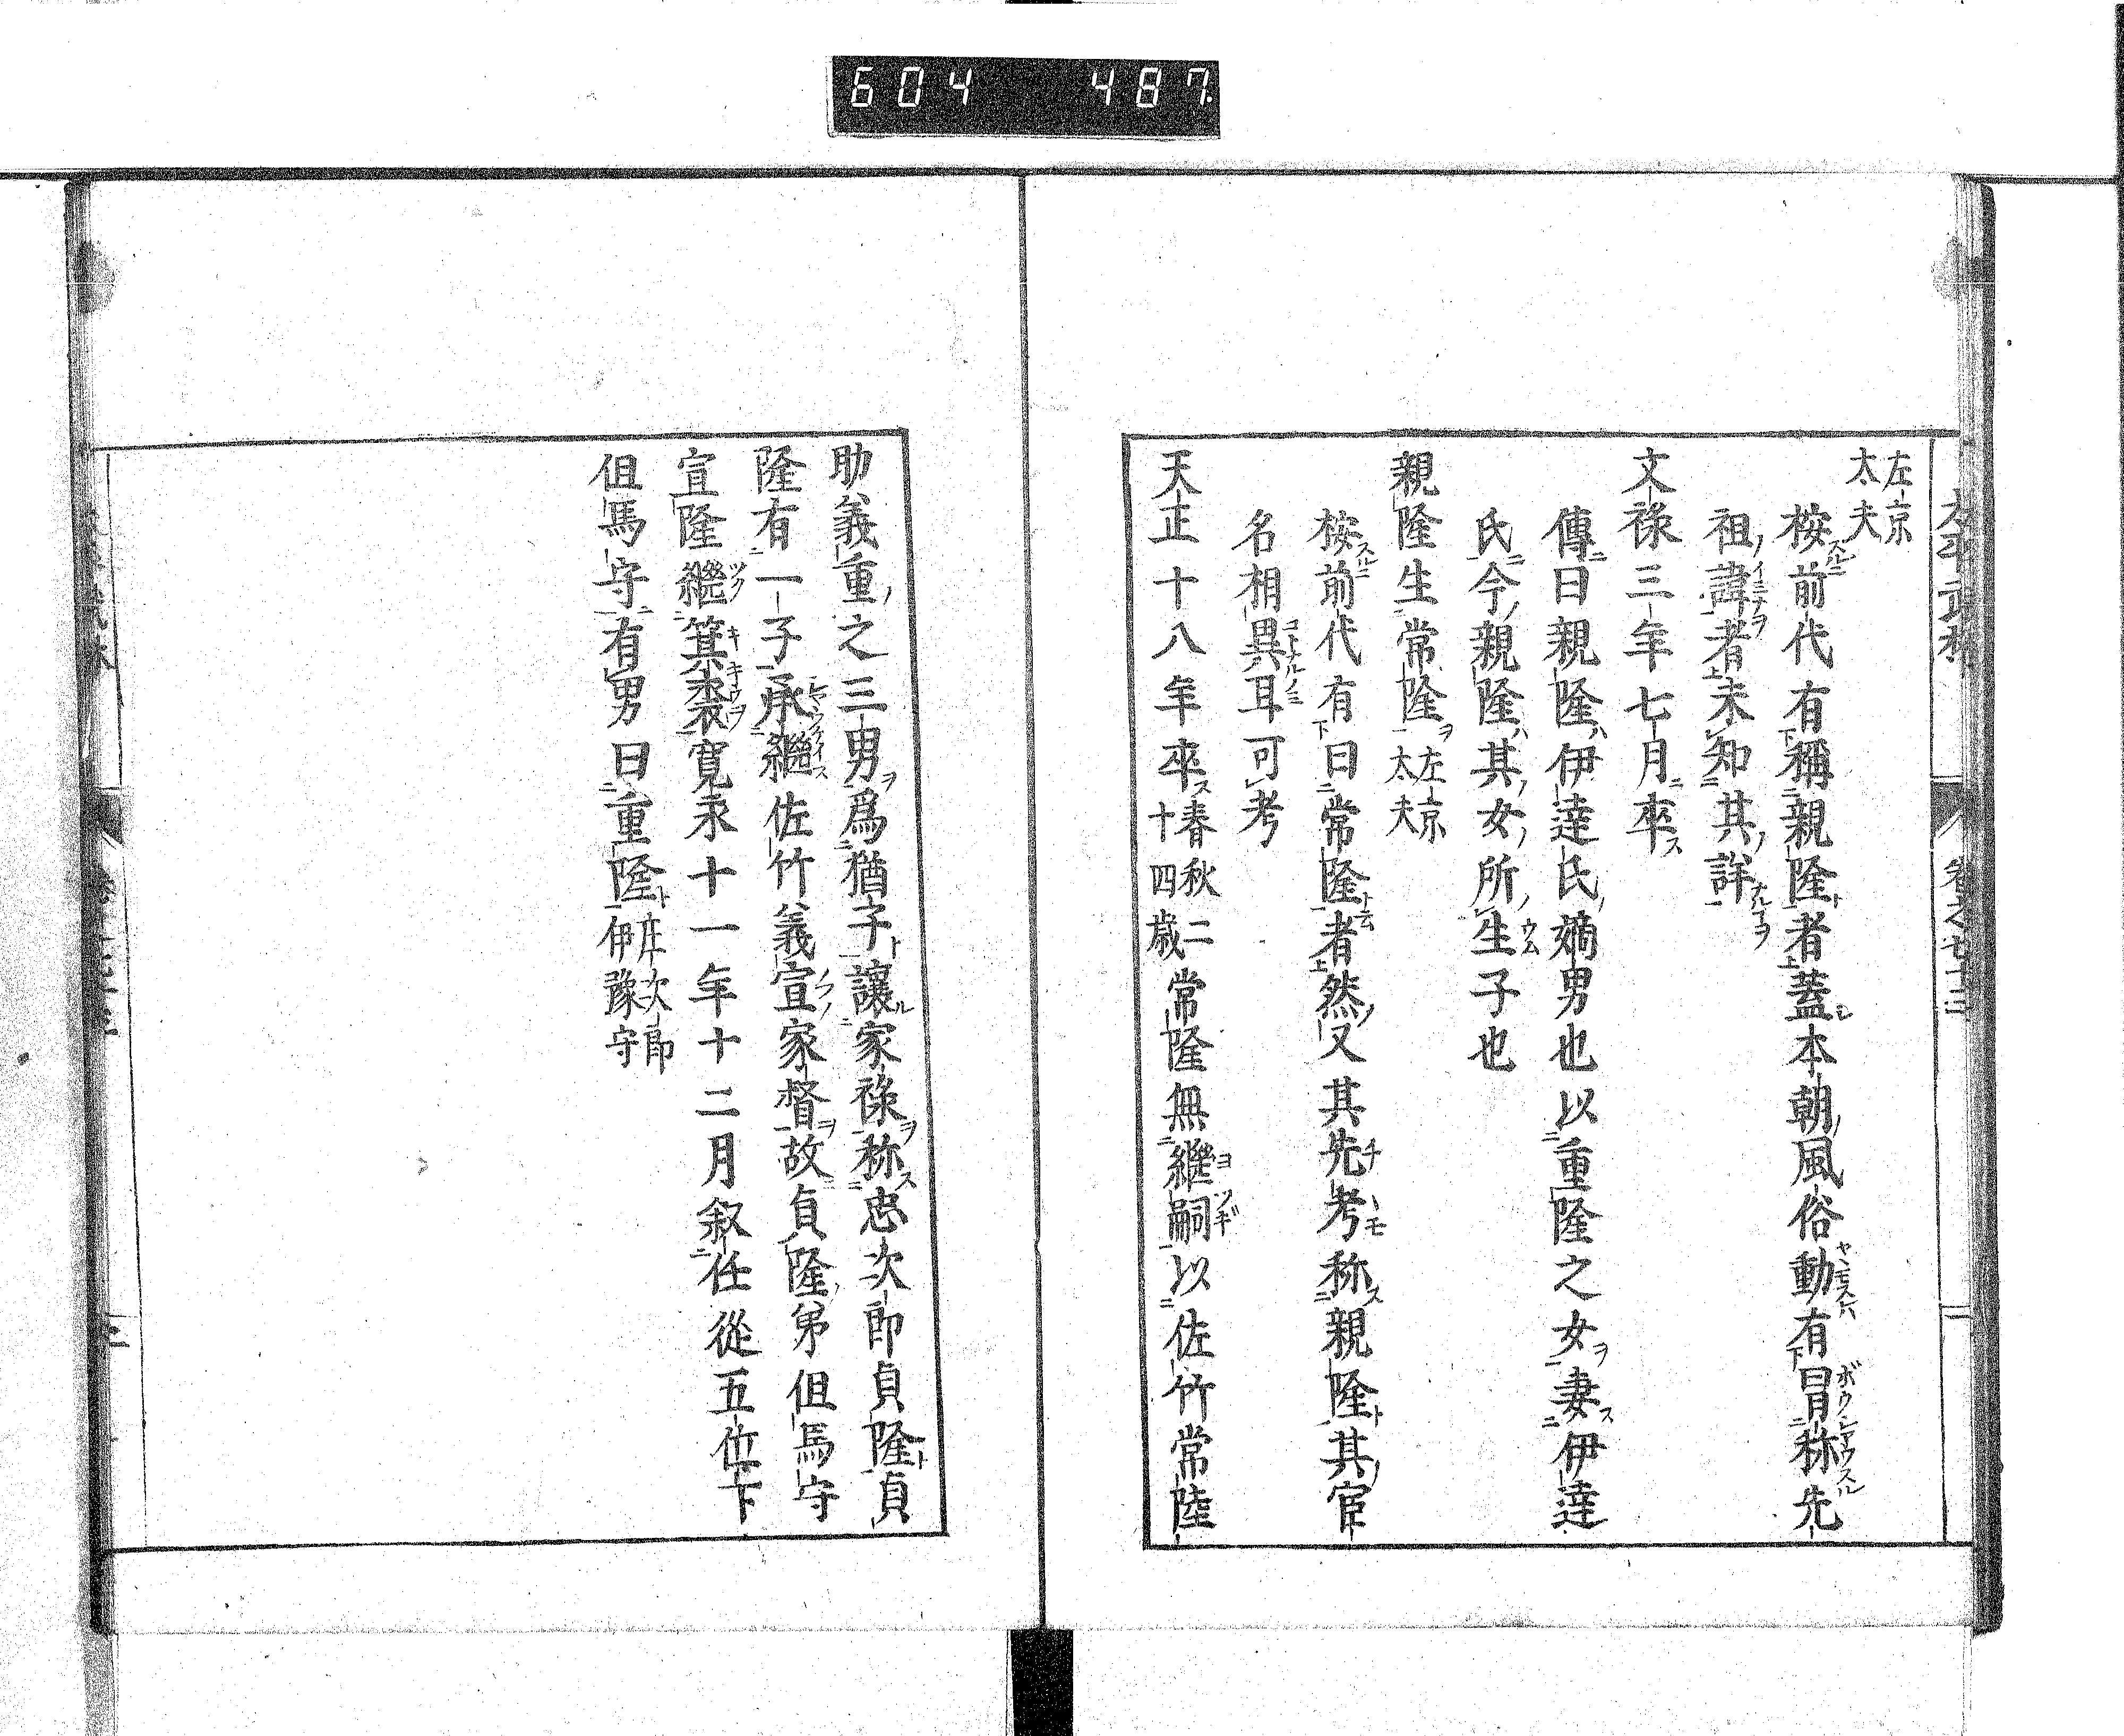 604 487
左京
太夫
按前代有稱親隆者蓋本朝風俗動有冒称先
祖諱者未知其詳
文禄三年七月卒
傳曰親隆伊達氏嫡男也以重隆之女妻伊達
氏今親隆其女所生子也
親隆生常隆左京太夫
按前代有曰常隆者然又其先考称親隆其官
名相異耳可考
天正十八年卒春秋二十四歳常隆無繼嗣以佐竹常陸
助義重之三男爲猶子讓家禄称忠次郎貞隆貞
隆有一子承繼佐竹義宣家督故貞隆弟但馬守
宣隆繼箕裘寛永十一年十二月叙任從五位下
但馬守有男曰重隆庄次郎伊豫守